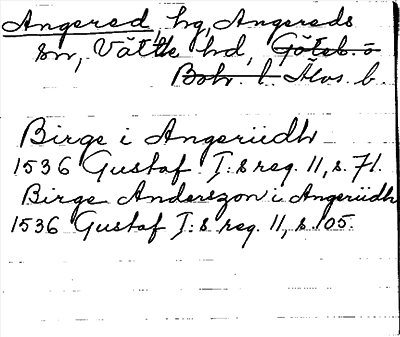 Angered, hg, Angereds
sn, Vättle hd, Göteb. o
Boh. l. Älvs. b.
Birge i Angeriidh
1536 Gustaf I:s reg. 11, s. 71.
Birge Anderszon i Angeriidh
1536 Gustaf I:s reg. 11, s. 105.